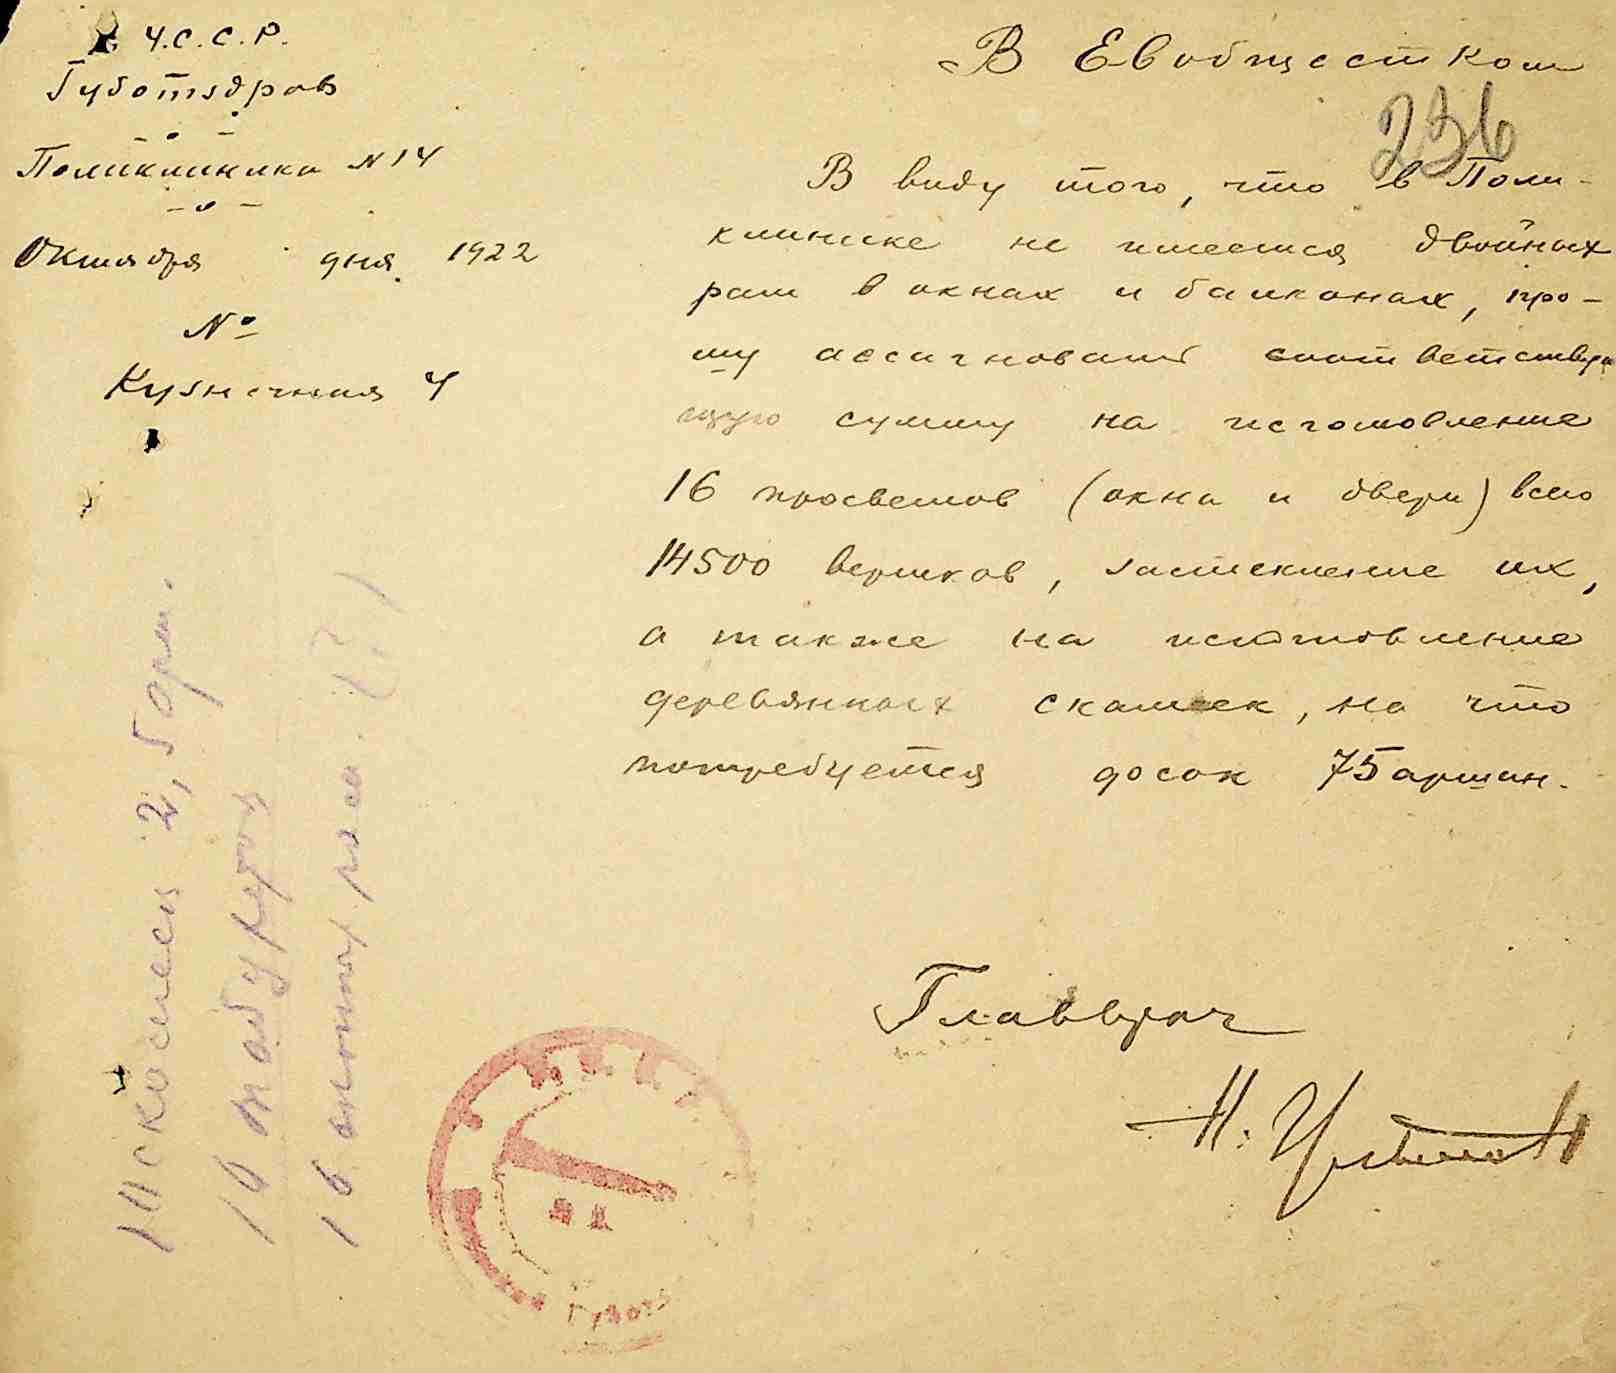 У.С.С.Р.
Губотздрав
Поликлиника N 14
Октября дня 1922
№
Кузнечная 4
В Евобщестком
236
В виду того, что в Поли-
клинике не имеется двойных
рам в окнах и балконах, про-
шу ассигновать соответствую
щую сумму на исготовление
16 просветов (окна и двери) всего
14500 вершков, застекление их,
а также на исготовление
деревянных скамеек, на что
потребуется досок 75 аршин.
Главврач
Н.
2, 5 арш.
10 табуретов
16 рам (?)
Губотз